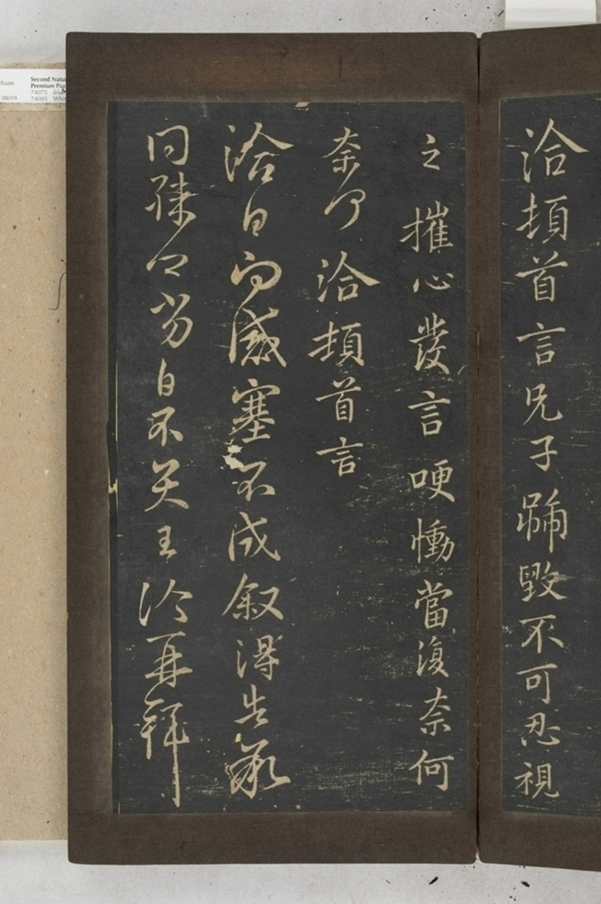 洽頓首言兄子號毀不可忍視
之摧心發言哽慟當復奈何
奈何洽頓首言
洽白向感塞不成叙得告承
問不具王洽再拜
Second Natu
Premium Pap
74071
74085 Whi